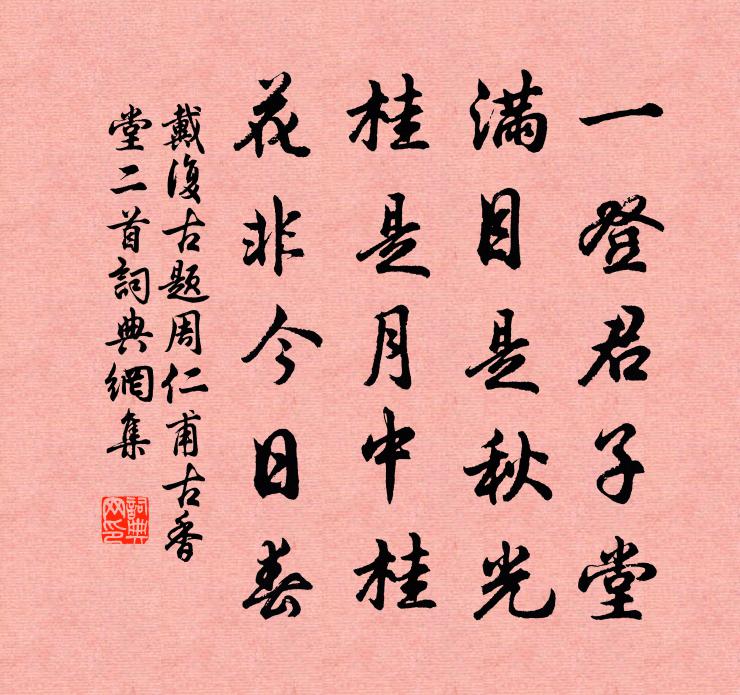 一登君子堂
滿目是秋光
桂是月中桂
花非今日春
戴復古題周仁甫古香
堂二首詞典網集
詞典
网印